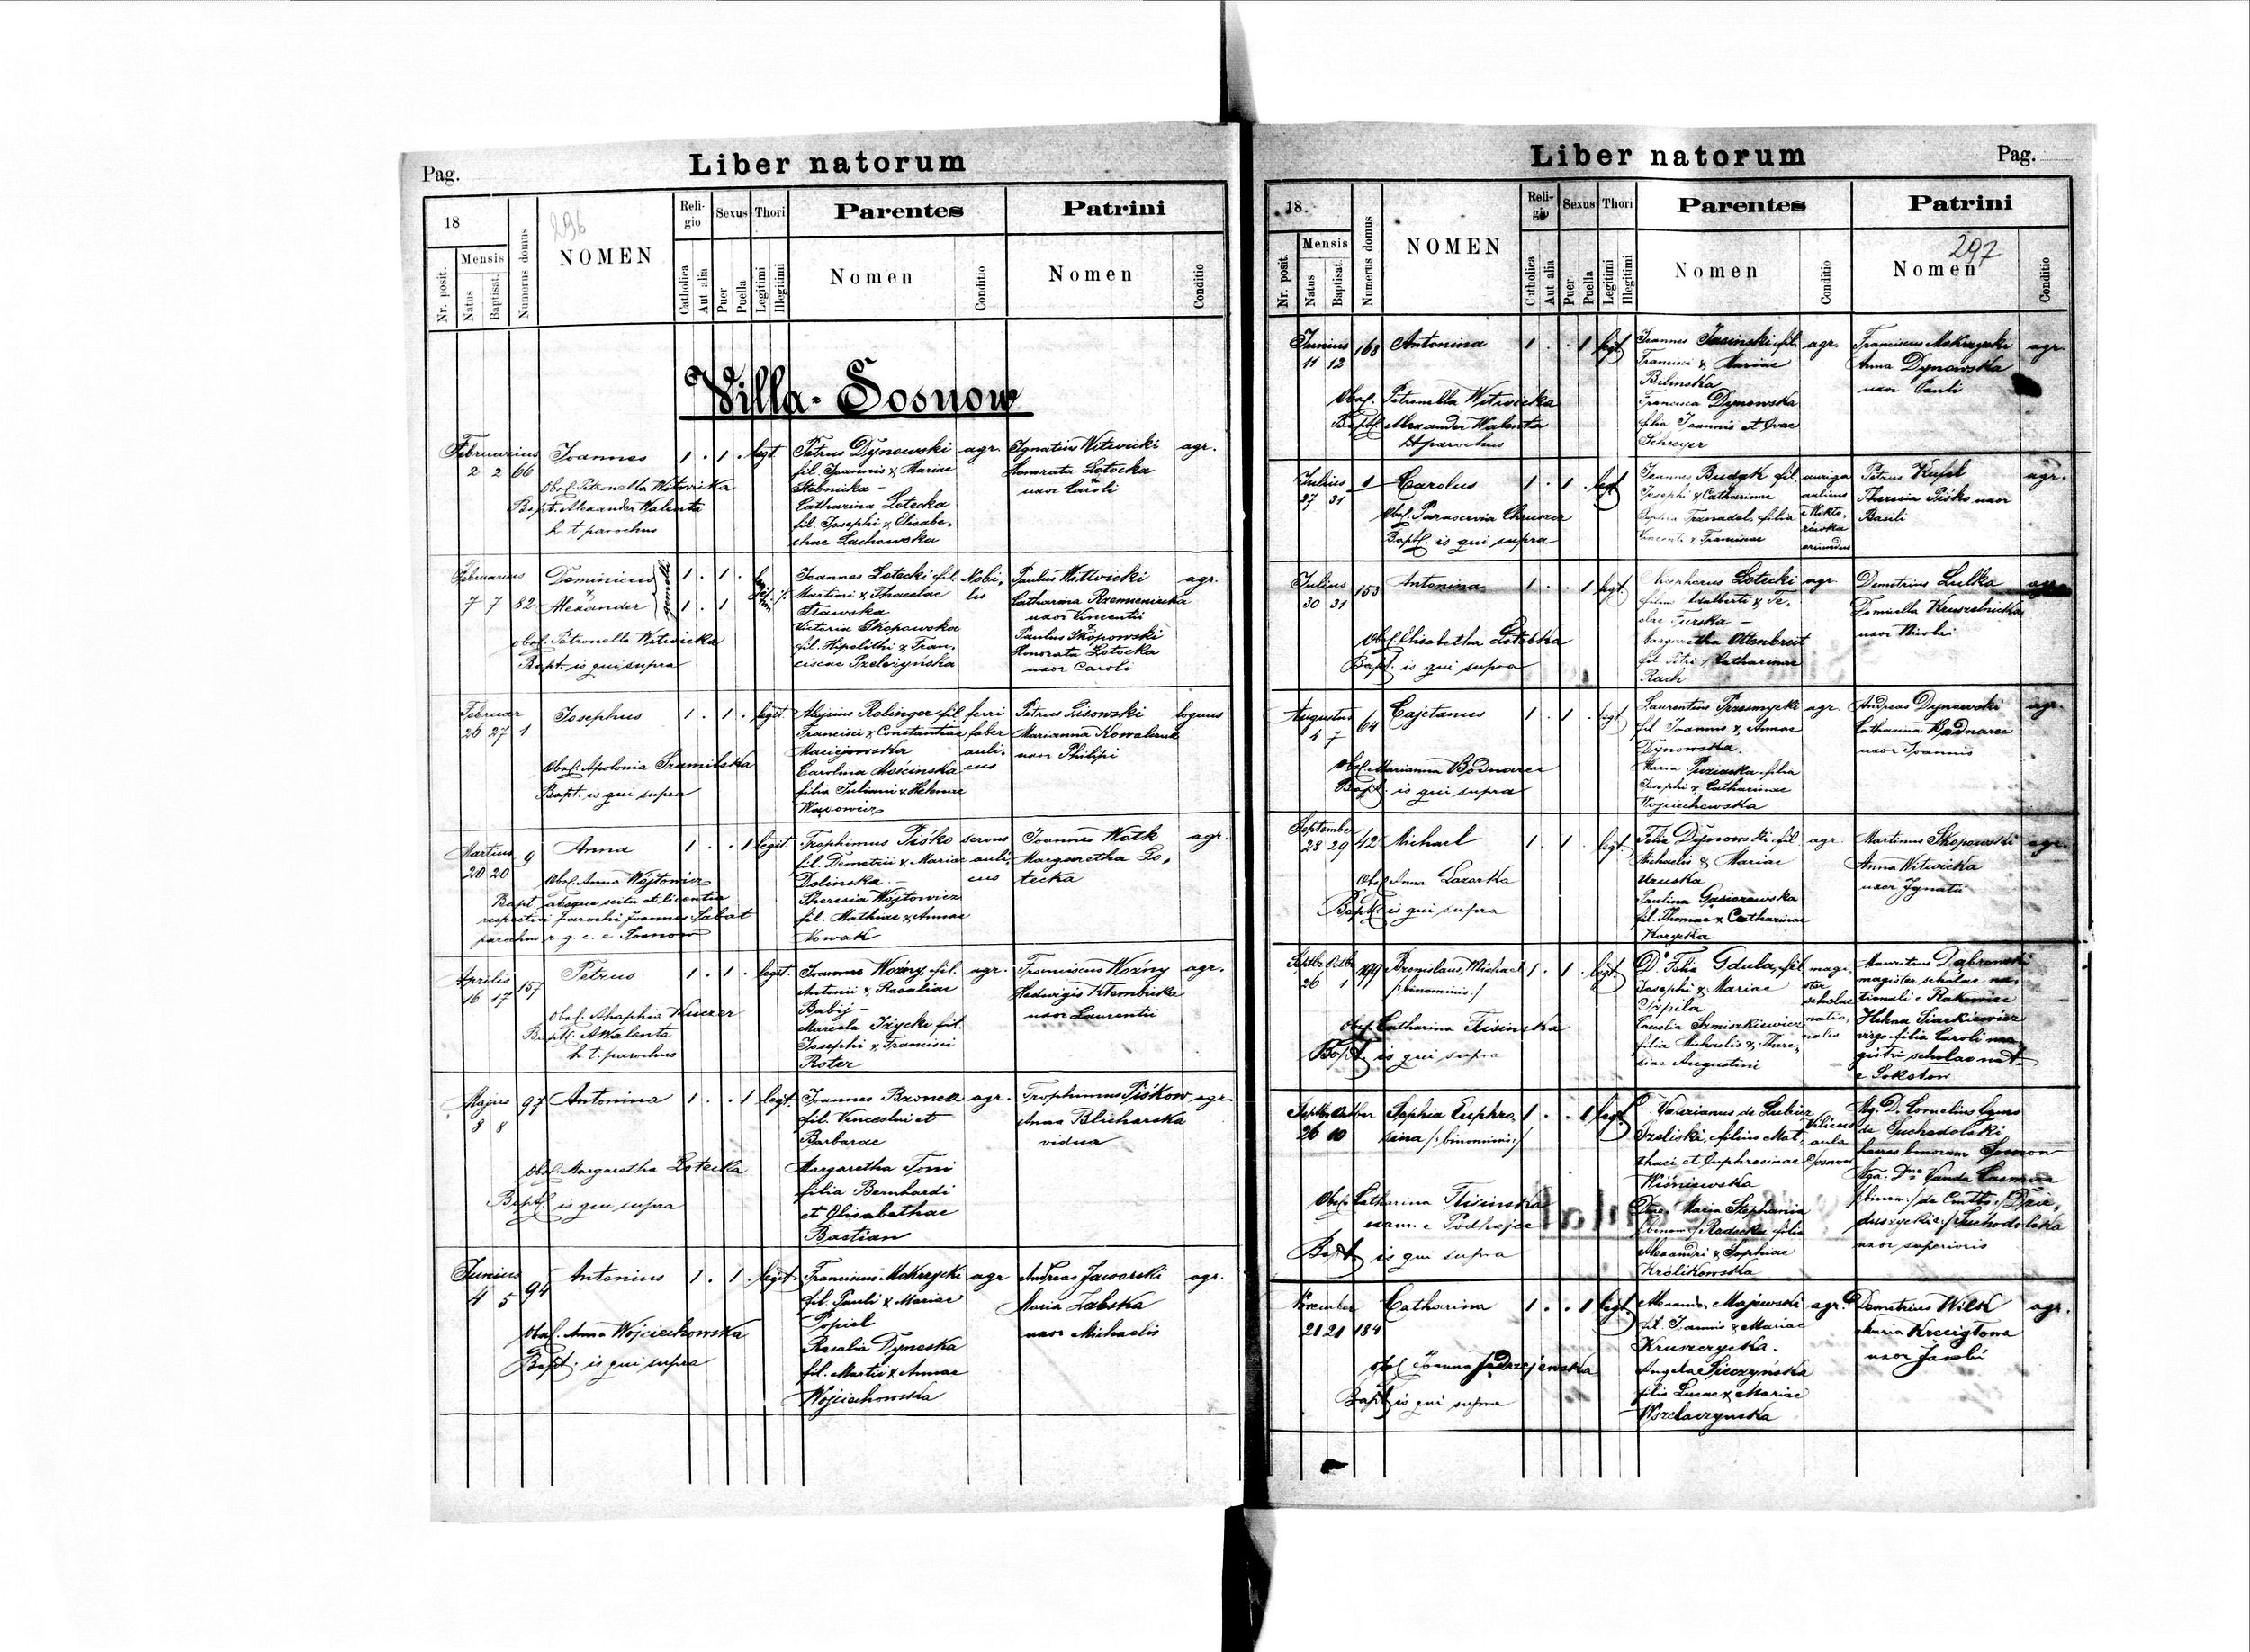 Pag.
Liber natorum
18
Nr. posit.
Mensis
Natus
Baptisat.
Numerus domus
296
NOMEN
Religio
Catholica
Aut alia
Sexus
Puer
Puella
Thori
Legitimi
Illegitimi
Parentes
Nomen
Conditio
Patrini
Nomen
Conditio
Villa - Sosnow
Februarius
2 2 66
Joannes
1 . 1 . legt.
Obst. Petronella Witwicka
Bapt. Alexander Walenta
h. t. parochus
Petrus Dynowski
fil. Joannis & Mariae
Stebnicka -
Catharina Łotecka
fil. Josephi & Elisabe-
thae Lachowska
agr.
Ignatius Witwicki
Honorata Łotocka
uxor Caroli
agr.
Februarius
7 7 82
Dominicus
&
Alexander
gemelli
1 . 1 .
1 . 1
obst. Petronella Witwicka
Bapt. is qui supra
Joannes Łotecki fil.
Martini & Theclae
Stawska
Victoria Skopowska
fil. Hipolithi & Fran-
ciscae Przeleżyńska
Nobi-
lis
Paulus Witwicki
Catharina Rzemieniecka
uxor Vincentii
&
Paulus Skopowski
Honorata Łotocka
uxor Caroli
agr.
Februar
26 27 1
Josephus
1 . 1 . legit.
Obst. Apolonia Szumilska
Bapt. is qui supra
Aloisius Rolinger fil
Francisci & Constantiae
Maciejowska
Carolina Mościnska
filia Juliani & Helenae
Wąsowicz
ferri
faber
auli-
cus
Petrus Lisowski
Marianna Kowaluk
uxor Philipi
Martius
20 20
9
Anna
1 . . 1 legit
Obst. Anna Wójtowicz
Bapt. absque scitu et licentia
respectivi parochi Joannes Łabat
parochus r. g. c. e Sosnow
Trophimus Piśko
fil. Demetrii & Mariae
Dolinska -
Theresia Wójtowicz
fil. Mathiae & Annae
Nowak
servus
auli-
cus
Joannes Wołk
Margaretha Ło-
tecka
agr.
Aprilis
16 17
157
Petrus
1 . 1 . legit.
Obst. Ahaphia Kuczer
Bapt. A Walenta
h. t. parochus
Joannes Woźny fil.
Antonii & Rosaliae
Babij -
Marcela Iżycki fil.
Josephi & Francisci
Roter
agr.
Franciscus Woźny
Hedwigis Klembicka
uxor Laurentii
agr.
Majus
8 8
97
Antonina
1 . . 1 legt.
Obst. Margaretha Łotecka
Bapt. is qui supra
Joannes Bzonek
fil. Venceslai et
Barbarae
Margaretha Toni
filia Bernhardi
et Elisabethae
Bastian
agr.
Trophimus Piśkow
Anna Blicharska
vidua
agr
Junius
4 5
94
Antonius
1 . 1 . legit.
Obst. Anna Wojciechowska
Bapt. is qui supra
Franciscus Mokrzycki
fil. Pauli & Mariae
Popiel
Rosalia Dynoska
fil. Martii & Annae
Wojciechowska
agr
Andreas Jaworski
Maria Zabska
uxor Michaelis
agr.
Liber natorum
Pag.
18.
Nr. posit.
Mensis
Natus
Baptisat.
Numerus domus
NOMEN
Religio
Catholica
Aut alia
Sexus
Puer
Puella
Thori
Legitimi
Illegitimi
Parentes
Nomen
Conditio
Patrini
297
Nomen
Conditio
Junius
11 12
168
Antonina
1 . . 1 legt
Obst. Petronella Witwicka
Bapt. Alexander Walenta
ht parochus
Joannes Jasinski fil.
Francisci & Mariae
Bilinska
Francisca Dynowska
filia Joannis et Evae
Schreyer
agr.
Franciscus Mokrzycki
Anna Dynowska
uxor Pauli
agr
Julius
27 31
1
Carolus
1 . 1 . legt
Obst. Parascevia Chruszcz
Bapt. is qui supra
Joannes Budyk fil
Josephi & Catharinae
filia
Vincenti & Franciscae
auriga
aulicus
e Wikto-
rówka
oriundus
Petrus Kufel
Theresia Piśko uxor
Basili
agr.
Julius
30 31
153
Antonina
1 . . 1 legt.
Obst. Elisabetha Łotecka
Bapt. is qui supra
Nicephorus Łotecki
filius Adalberti & Te-
clae Turska -
Margaretha Ottenbreit
fil Petri & Catharinae
Rach
agr
Demetrius Lulka
Domicella Kruszelnicka
uxor Nicolai
agr
Augustus
4 7
64
Cajetanus
1 . 1 . legt
Obst. Marianna Bednarec
Bapt. is qui supra
Laurentius Przesmycki
fil Joannis & Annae
Dynowska.
Maria filia
Josephi & Catharinae
Wojciechowska
agr.
Andreas Dynowski
Catharina Bednarec
uxor Joannis
agr.
September
28 29
42
Michael
1 . 1 . legt.
Obst. Anna Lazorka
Bapt. is qui supra
Felix Dynowski fil
Michaelis & Mariae
Uruska
Paulina Gąsiorowska
fil. Thomae & Catharinae
Korycka
agr.
Martinus Skopowski
Anna Witwicka
uxor Ignatii
agr.
Septbr Octbr
26 1
199
Bronislaus, Michael
/:binominis:/
1 . 1 . legt.
Obst. Catharina Fliśinska
Bapt. is qui supra
D. Felix Gdula, fil
Josephi & Mariae
Szpila
Caecilia Szmiszkiewicz
filia Michaelis & There-
siae Augustini
magi-
ster
scholae
natio-
nalis
Mauritius Dąbrowski
magister scholae na-
tionali e Rakowiec
Helena Siarkiewicz
virgo filia Caroli ma-
gistri scholae nat.
e Sokołow
Septbr October
26 10
Sophia Euphro-
sina /:binominis:/
1 . . 1 legt
Obst. Catharina Fliśinska
exam. e Podhajce
Bapt. is qui supra
Valerianus de Lubicz
Szeliski, filius Mat-
thaei et Euphrosinae
Wiśniewska
Dna Maria Stephania
/binom:/ Radecka filia
Alexandri & Sophiae
Królikowska
Vilicus
aulae
Sosnow
Mg. D. Cornelius Eques
de Suchodolski
haeres bonorum Sosnow
Mga. Dna Vanda Casimira
/:binom:/ de Cmttb. /:Dzie-
duszyckie:/ Suchodolska
uxor superioris
November
21 21 184
Catharina
1 . . 1 legt.
obst Joanna Jędrzejewska
Bapt. is qui supra
Alexander Majewski
fil. Joannis & Mariae
Kruszezycka.
Angela Pieczyńska
filia Lucae & Mariae
Wszelaczynska
agr.
Demetrius Wilk
Maria Krecigłowa
uxor Jacobi
agr.